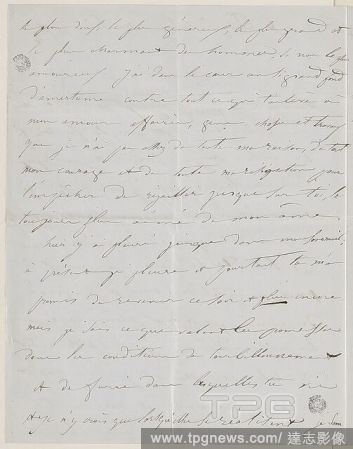 le plus doux, le plus généreux, le plus grand et
le plus charmant des hommes, si non le plus
amoureux. J'ai dans le cœur un si grand fond
d'amertume contre tout ce qui
mon amour
que je n'ai pas de toute ma raison, de tout
mon courage et de toute ma résignation pour
l'empêcher de rejaillir jusque sur toi, le
toujours plus aimé de mon âme.
j'ai pleuré jusque dans mon sommeil,
à présent je pleure et pourtant tu m'as
promis de revenir ce soir et plus encore
mais je sais ce que valent les promesses
dans les conditions de tourbillonnement
et de furie dans lesquelles tu vis
et je n'y crois que lorsqu'elles se réalisent
TPG
www.tpgnews.com / 達志影像